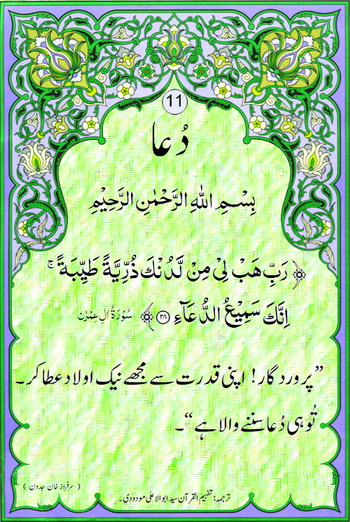 11
دُعا
بِسْمِ اللهِ الرَّحْمٰنِ الرَّحِيْمِ
﴿ رَبِّ هَبْ لِیْ مِنْ لَّدُنْكَ ذُرِّيَّةً طَيِّبَةً ۚ
اِنَّكَ سَمِيْعُ الدُّعَآءِ ﴿۳۸﴾ ﴾ سُوْرَةُ اٰلِ عِمْرٰن
”پروردگار! اپنی قدرت سے مجھے نیک اولاد عطا کر۔
تُو ہی دُعا سننے والا ہے“۔
( سرفراز خان جدون )
ترجمہ: تفہیم القرآن سید ابوالاعلی مودودی۔